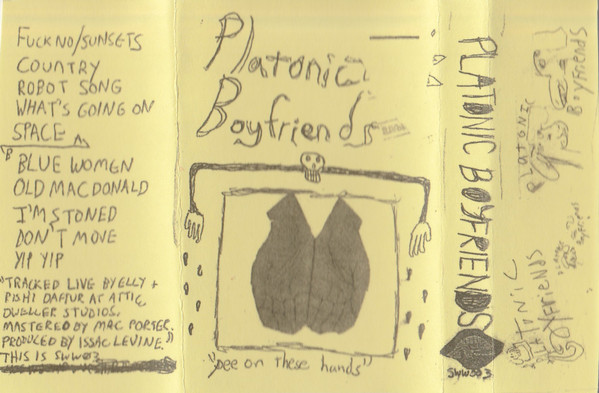 FUCK NO/SUNSETS
COUNTRY
ROBOT SONG
WHAT'S GOING ON
SPACE A
"B BLUE WOMEN
OLD MACDONALD
I'M STONED
DON'T MOVE
YIP YIP
"TRACKED LIVE BY ELLY +
RISHI DAFTUR AT ATTIC
DWELLER STUDIOS.
MASTERED BY MAC PORSER.
PRODUCED BY ISSAC LEVINE."
THIS IS SWW03
Platonic
Boyfriends
"pee on these hands"
PLATONIC BOYFRIENDS
SWW003
PLATONIC
BOYFRIENDS
PLATONIC
BOYFRIENDS